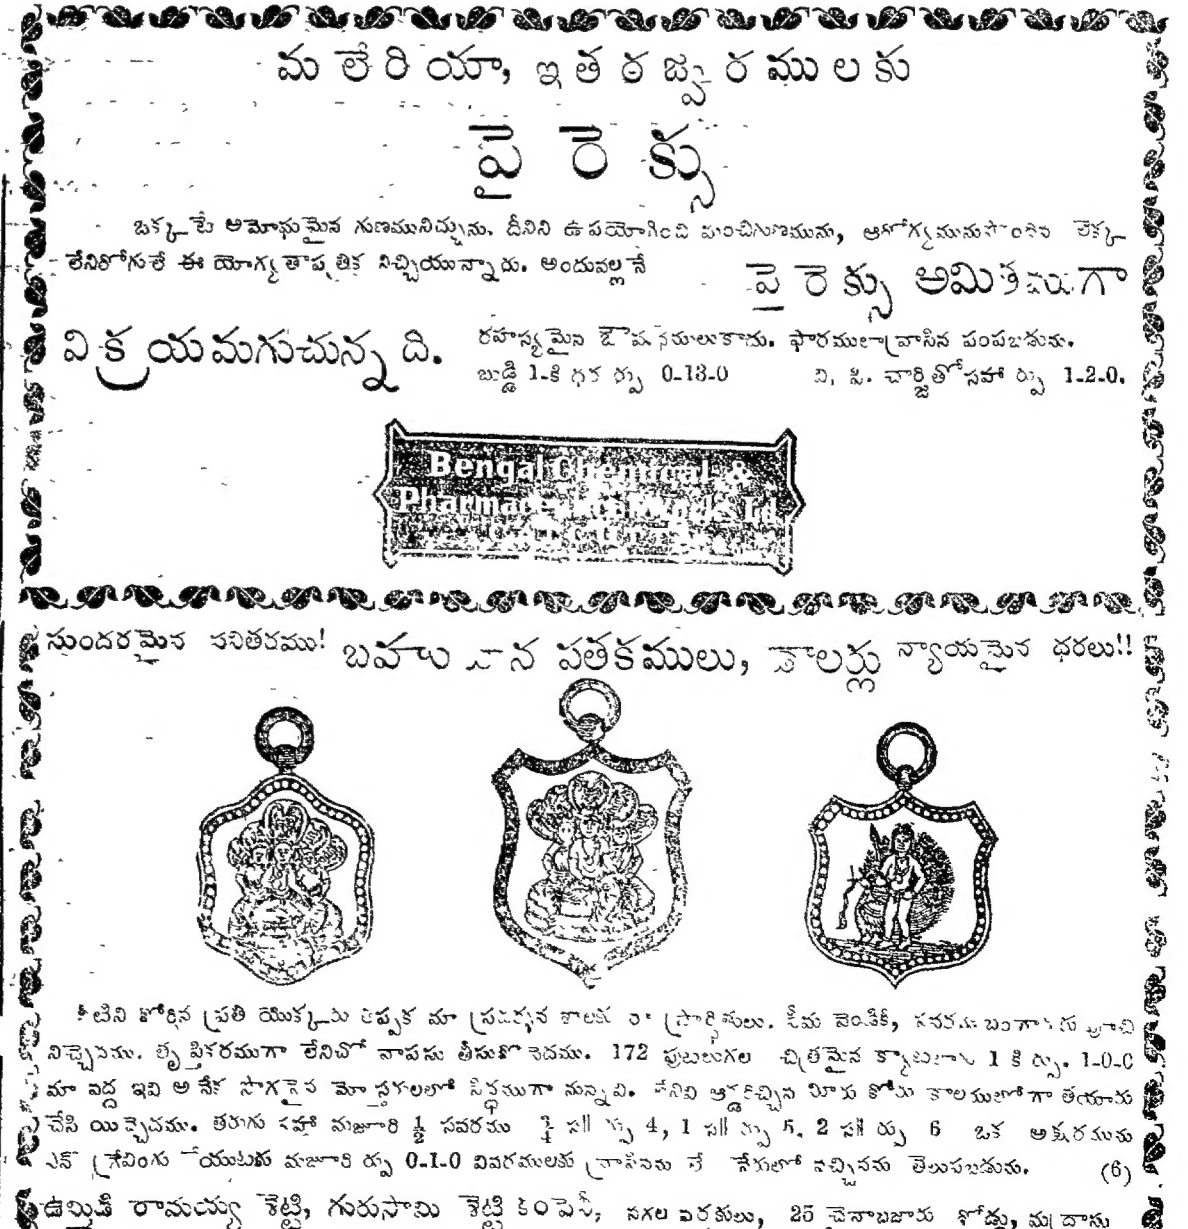 మలేరియా, ఇతరజ్వరములకు
పైరెక్సు
ఒక్కటే అమోఘమైన గుణమునిచ్చును. దీనిని ఉపయోగించి మంచిగుణమును, ఆరోగ్యమునుపొందిన లెక్క
లేనిరోగులే ఈ యోగ్యతాపత్రిక నిచ్చియున్నారు. అందువల్లనే
పైరెక్సు అమితముగా
విక్రయమగుచున్నది.
రహస్యమైన ఔషధములుకావు. ఫారములావ్రాసిన పంపబడును.
బుడ్డి 1-కి ధర ర్పు 0-13-0 వి. పి. చార్జితోసహా ర్పు 1-2-0.
Bengal Chemical &
Pharmaceutical Works Ltd.
సుందరమైన పనితనము!
పతకములు, డాలర్లు
న్యాయమైన ధరలు!!
వీటిని కోరిన ప్రతి యొక్కరు తప్పక మా ప్రదర్శన శాలకు రా ప్రార్థితులు. సీమ వెండికి,
నిచ్చెదము. తృప్తికరముగా లేనిచో వాపసు తీసుకొనెదము. 172 పుటలుగల చిత్రమైన క్యాటలాగు 1 కి ర్పు. 1-0-0
మా వద్ద ఇవి అనేక సొగసైన మోస్తరులలో సిద్ధముగా నున్నవి. ఆర్డరిచ్చిన మీరు కోరు కాలములోగా తయారు
చేసి యిచ్చెదము. తరుగు సహా మజూరి ½ సవరము ¾ స॥ ర్పు 4, 1 స॥ ర్పు 5, 2 స॥ ర్పు 6 ఒక అక్షరమును
ఎన్ గ్రేవింగు చేయుటకు మజూరి ర్పు 0-1-0 వివరములకు వ్రాసినను లేక నేరులో వచ్చినను తెలుపబడును. (6)
ఉమ్మిడి రామయ్య శెట్టి, గురుసామి శెట్టి కంపెనీ, నగల వర్తకులు, 25 చైనాబజారు రోడ్డు, మద్రాసు